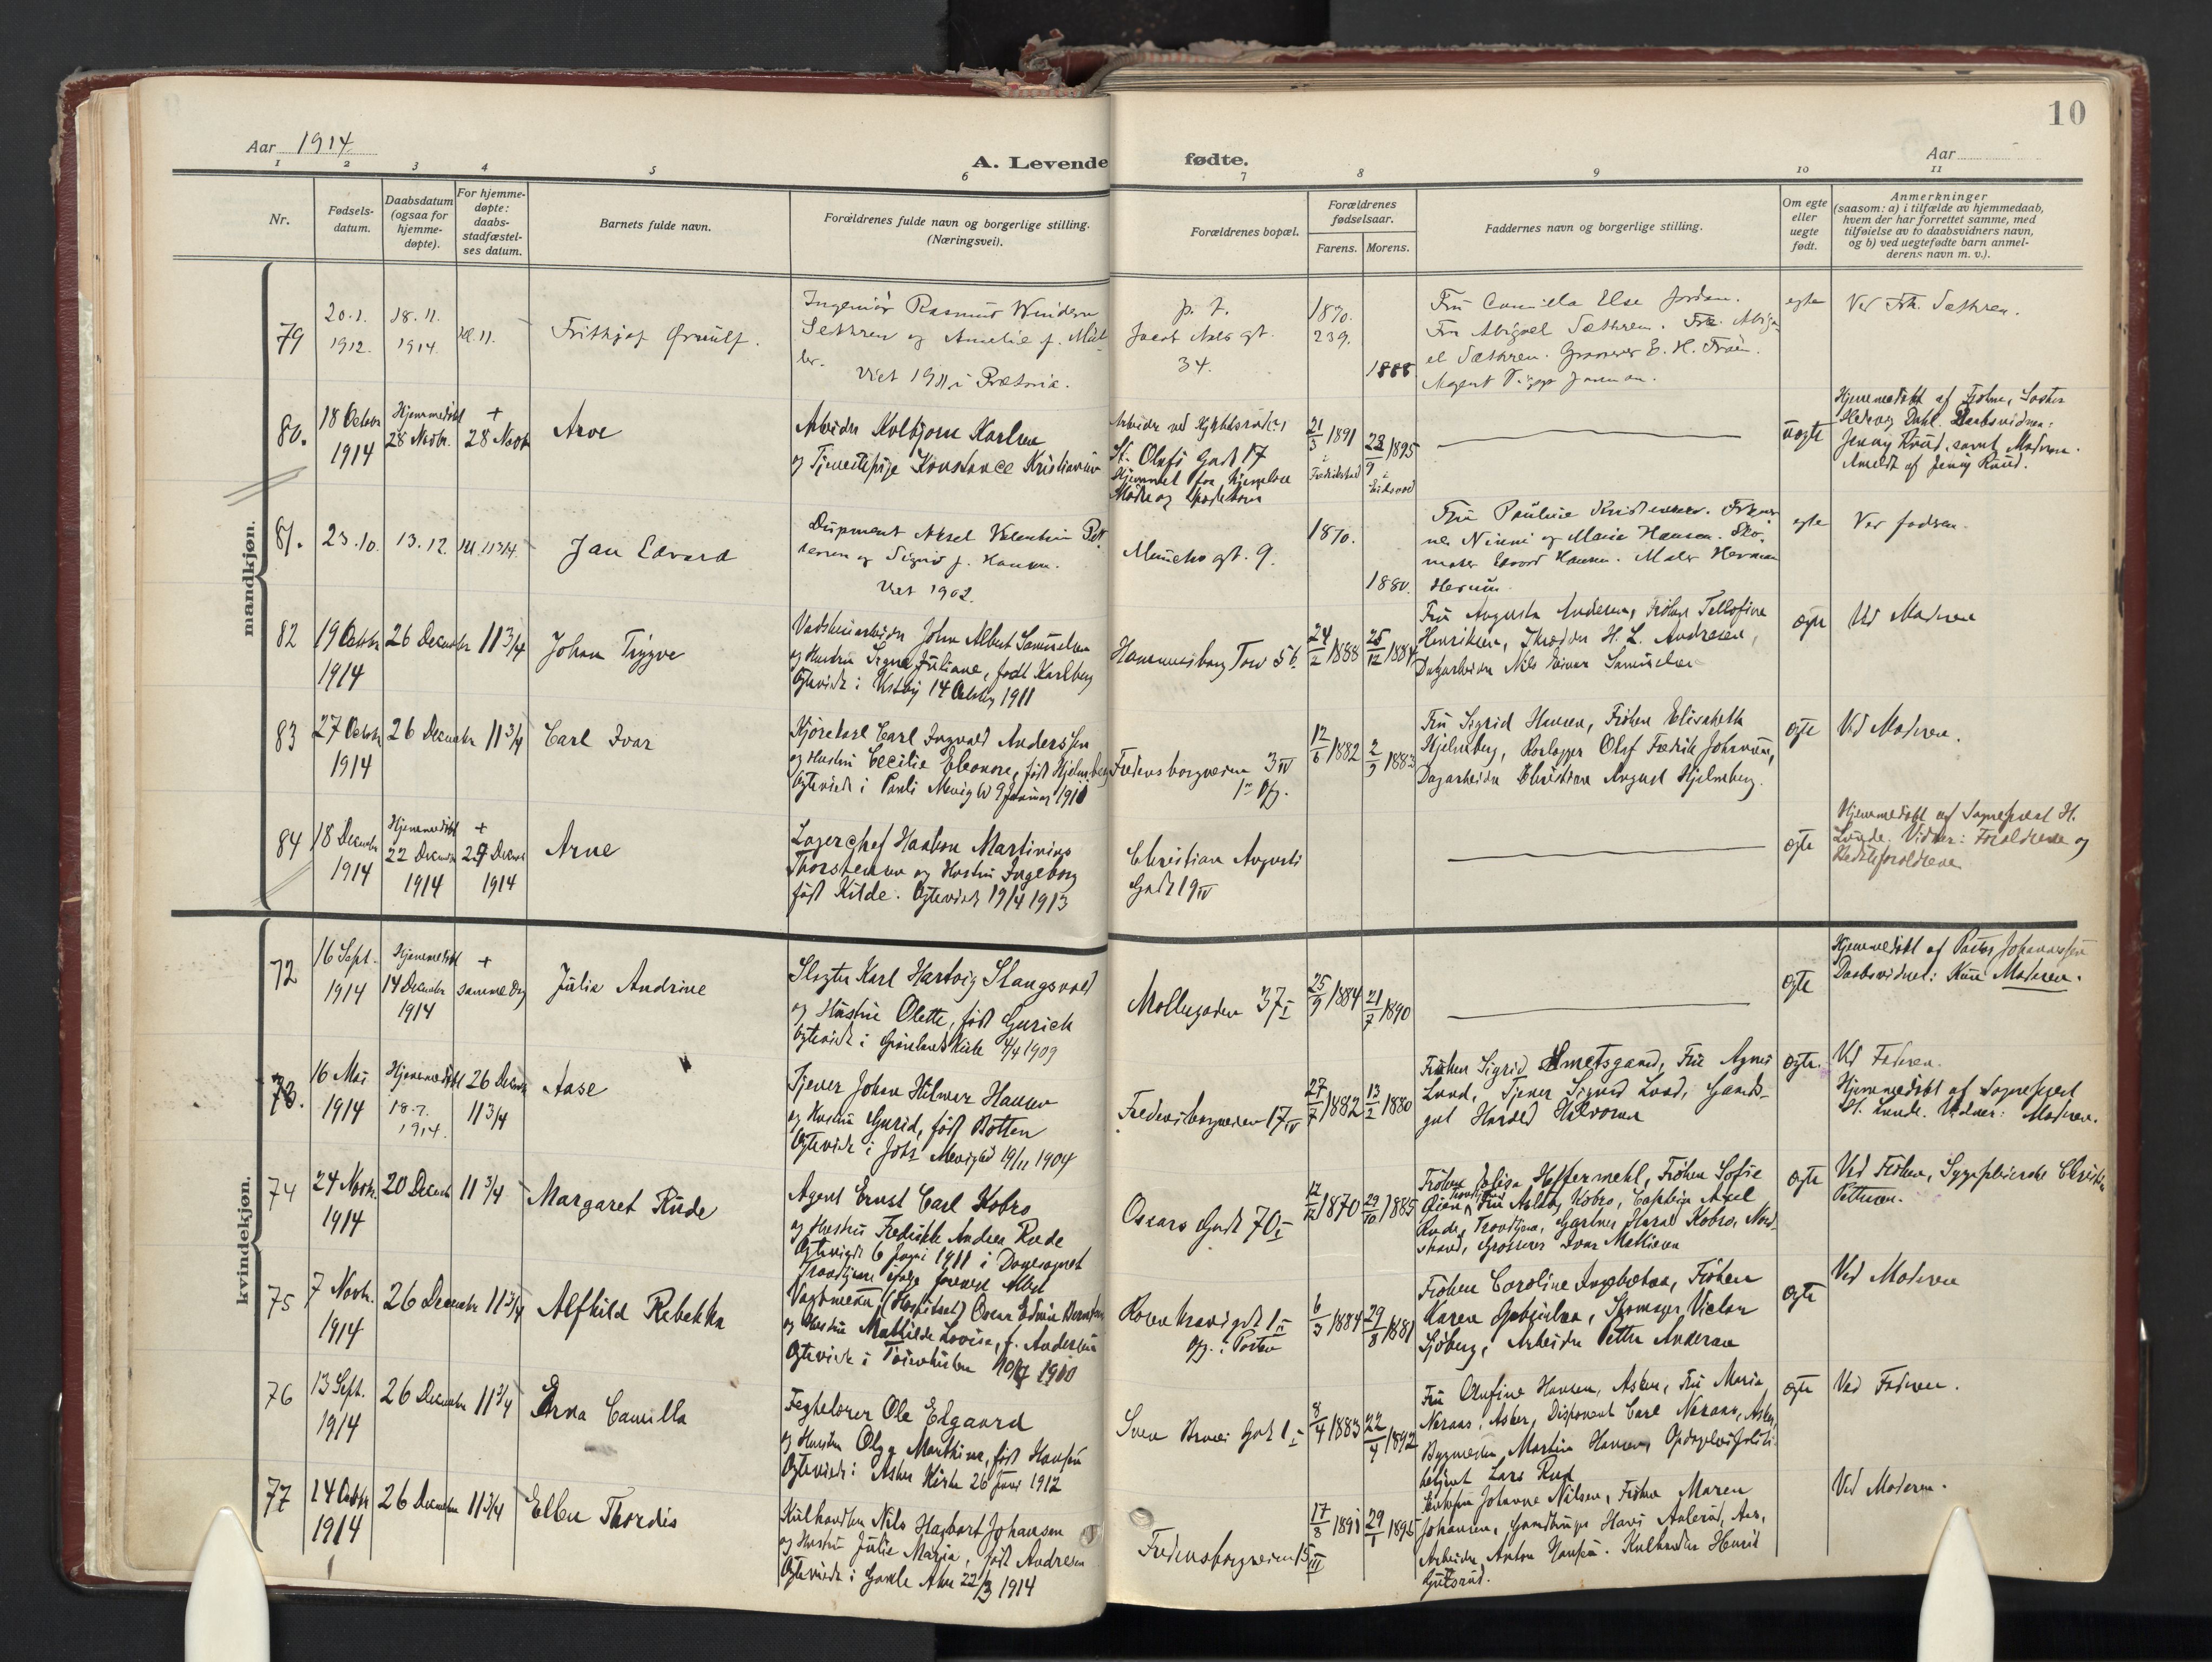 10
Aar 1914
A. Levende fødte.
Aar
1 2 3 4 5 6 7 8 9 10 11
Nr.
Fødsels-
datum.
Daabsdatum
(ogsaa for
hjemme-
døpte).
For hjemme-
døpte:
daabs-
stadfæstel-
ses datum.
Barnets fulde navn.
Forældrenes fulde navn og borgerlige stilling.
(Næringsvei).
Forældrenes bopæl.
Forældrenes
fødselsaar.
Farens. Morens.
Faddernes navn og borgerlige stilling.
Om egte
eller
uegte
født.
Anmerkninger
(saasom: a) i tilfælde av hjemmedaab,
hvem der har forrettet samme, med
tilføielse av to daabsvidners navn,
og b) ved uegtefødte barn anmel-
derens navn m. v.).
mandkjøn.
79
20.1.
1912.
18.11.
1914.
Kl. 11.
Frithjof Ørnulf.
Ingeniør Rasmus
Sethren og Amelie f.
Viet 1911 i Pretoria.
p. t.
Jacob Aals gt.
34.
1870.
239.
1888
Fru Camilla Else Jordan.
Fru Abigael Sæthren. Frk. Abiga-
el Sæthren. Grosserer E. H.
Agent
egte
Ved Frk. Sæthren.
80.
18 Octobr
1914
Hjemmedøbt
28 Novbr.
+
28 Novbr
Arve
Arbeider Kolbjørn Karlsen
og Tjenestepige Konstance Kristiansen
Arbeider ved
St. Olafs Gade 17
Hjemmet for hjemløse
Mødre og Spædebørn
21/3 1891
i
Fredrikstad
22/9 1895
i
Eidsvold
uegte
Hjemmedøbt af Frøken, Søster
Hedevig Dahl. Daabsvidner:
Jenny Ruud, samt Moderen.
Anmeldt af Jenny Ruud.
81.
23.10.
13.12.
Kl. 11 3/4.
Jan Edvard
Disponent Aksel Valentin Pet-
tersen og Sigrid f. Hansen.
Viet 1902.
Munchs gt. 9.
1870.
1880.
Fru Pauline Kristensen. Frøkner-
ne Ninni og Marie Hansen. Sko-
maker Edvard Hansen. Maler Herman
egte
Ved fadren.
82
19 Octobr
1914
26 Decembr
11 3/4
Johan Trygve
Vadskeriarbeider John Albert Samuelsen
og Hustru Signe Juliane, født Karlberg
Egteviede i Vestby 14 Octobr 1911
Hammersborg Torv 5 b.
24/2 1888
25/12 1884
Fru Augusta Andersen, Frøken
Henriksen, Skrædder H. L. Andresen,
Dagarbeider Nils Einar Samuelsen
egte
Ved Moderen
83
27 Octobr
1914
26 Decembr
11 3/4
Carl Ivar
Kjørekarl Carl Ingvald Anderssen
og Hustru Cecilie Eleonore, født Hjelmberg
Egteviede i Pauli Menighed 9 Januar 1910
Fredensborgveien 3 IV
1ste Opg.
12/6 1882
2/9 1883
Fru Sigrid Hansen, Frøken Elisabeth
Hjelmberg, Rørlægger Olaf Fredrik Johansen,
Dagarbeider Christian August Hjelmberg.
egte
Ved Moderen.
84
18 Decembr
1914
Hjemmedøbt
22 Decembr
1914
+
27 Decembr
1914
Arne
Lagerchef Haakon Martinius
Thorstensen og Hustru Ingeborg
født Kilde. Egteviede 19/4 1913
Christian Augusts
Gade 19 IV
egte
Hjemmedøbt af Sogneprest H.
Lunde. Vidner: Forældrene og
Bedsteforældrene
kvindekjøn.
72
16 Sept.
1914
Hjemmedøbt
14 Decembr
1914
+
samme Dag
Julie Andrine
Slagter Karl Hartvig Stangsvold
og Hustru Olette, født Gurich
Egteviede i Grønlands Kirke 4/4 1909
Møllergaden 37 I
25/9 1884
21/7 1890
egte
Hjemmedøbt af Pastor Johannessen
Daabsvidnet: Kun Moderen.
73.
16 Mai
1914
Hjemmedøbt
18.7.
1914.
26 Decembr
11 3/4
Aase
Tjener Johan Hilmar Hansen
og Hustru Gurid, født Botten
Egteviede i Johs Menighed 19/11 1904
Fredensborgveien 17 IV
27/7 1882
13/2 1880
Frøken Sigrid Smetsgaard, Fru Agnes
Lund, Tjener Sigurd Lund, Gaards-
gut Harald Halvorsen
egte.
Ved Faderen.
Hjemmedøbt af Sogneprest
H. Lunde. Vidner: Moderen.
74
24 Novbr.
1914
20 Decembr
11 3/4
Margaret Rude
Agent Ernst Carl Kobro
og Hustru Fredrikke Andrea Rude
Egteviede 6 Juni 1911 i Domsognet
Trondhjem ifølge forevist Attest
Oscars Gade 70 I
12/12 1870
29/10 1885
Frøken Elisa Heftermehl, Frøken Sofie
Øien, Fru Aslaug Kobro, Captein Axel
Rude, Trondhjem, Gartner Harald Kobro, Nord-
strand, Grosserer Ivar Mathiesen
egte
Ved Frøken, Sygepleierske Christine
Pettersen.
75
7 Novbr.
1914
26 Decembr
11 3/4
Alfhild Rebekka
Vagtmester (Hospitalet) Oscar Edvin
og Hustru Mathilde Lovise, f. Andersen
Egteviede i Tøienkirken 1910
Rosenkrantzgade 1 II
opg. i Porten
6/3 1884
29/8 1881
Frøken Caroline Ingebretsen, Frøken
Karen Gabrielsen, Skomager Victor
Sjøberg, Arbeider Petter Andersen
egte
Ved Moderen
76
13 Sept.
1914
26 Decembr
11 3/4
Erna Camilla
Fægtelærer Ole Edgaard
og Hustru Olga Marthine, født Hansen
Egteviede i Asker Kirke 26 Juni 1912
Sven Bruns Gade 1 I
8/4 1883
22/4 1892
Fru Olufine Hansen, Asker, Fru Maria
Neraas, Asker, Disponent Carl Neraas, Asker,
Bygmester Martin Hansen, Opdagelsespoliti-
betjent Lars Rud
egte
Ved Faderen.
77
14 Octobr
1914
26 Decembr
11 3/4
Ellen Thordis
Kulhandler Nils Hagbart Johansen
og Hustru Julie Marie, født Andresen
Egteviede i Gamle Aker 22/3 1914
Fredensborgveien 15 III
17/8 1891
29/1 1895
Johanne Nilsen, Frøken Maren
Johansen, Gaardbruger Hans Aulerud, Aas,
Arbeider Anton Hansen. Kulhandler Henrik
Ved Moderen.